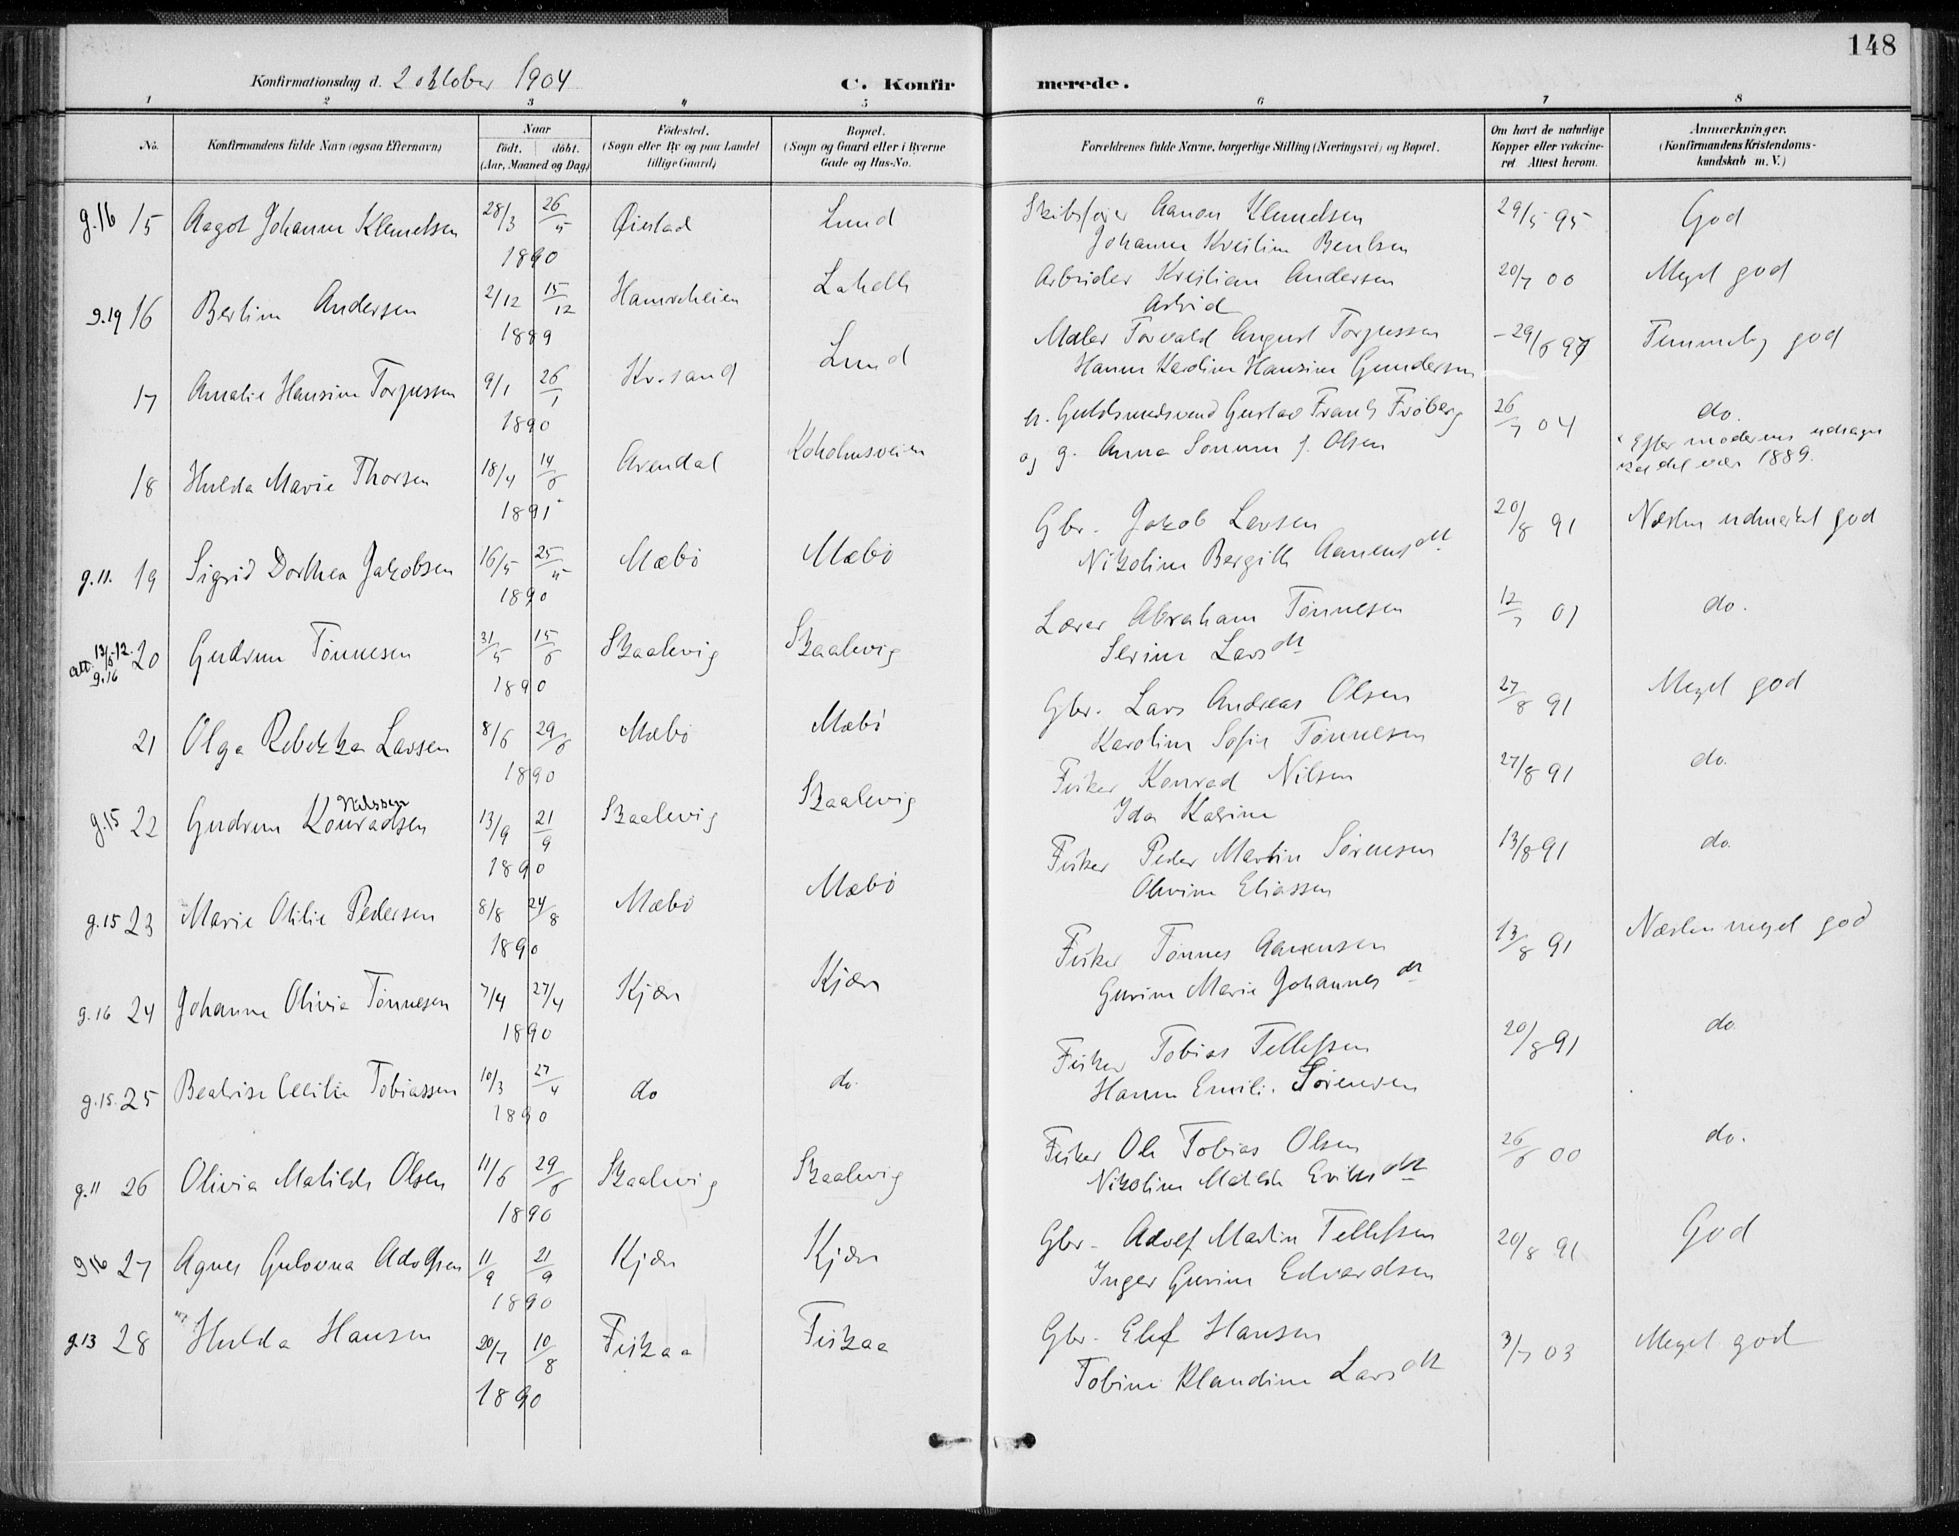 148
Konfirmationsdag d. 2 oktober 1904 C. Konfirmerede.
1 2 3 4 5 6 7 8
No. Konfirmandens fulde Navn (ogsaa Efternavn) Naar født. døbt. (Aar, Maaned og Dag) Fødested. (Sogn eller By og paa Landet tillige Gaard) Bopæl. (Sogn og Gaard eller i Byerne Gade og Hus-No. Forældrenes fulde Navne, borgerlige Stilling (Næringsvei) og Bopæl. Om havt de naturlige Kopper eller vakcineret Attest herom. Anmærkninger. (Konfirmandens Kristendomskundskab m. V.)
g.16 15 Aagot Johanne Klemetsen 28/3 26/5 1890 Øiestad Lund Aanon Klemetsen 29/5 95 God
Johanne Kristine Bentsen
g.19 16 Bertine Andersen 2/12 15/12 1889 Hamreheien Arbeider Kristian Andersen 20/7 00 Meget god
Astrid
17 Amalie Hansine Torjussen 9/1 26/1 1890 Kr.sand Lund Maler Torvald August Torjussen - 29/6 97 Temmelig god
Hanne Karoline Hansine Gundersen
18 Hulda Marie Thorsen 18/4 14/6 1891 Arendal Kokholmsveien Guldsmedsvend Gustav Frantz Frøberg 26/7 04 do.
og g. Anna Somme f. Olsen
Efter moderens udsagn skal det være 1889.
g.11. 19 Sigrid Dorthea Jakobsen 16/5 25/5 1890 Mæbø Mæbø Gbr. Jakob Larsen 20/8 91 Næsten udmerket god
Nikoline Bergitte Aanensdtr
att. 13/6-12. g.16 20 Gudrun Tønnesen 31/5 15/6 1890 Skaalevig Skaalevig Lærer Abraham Tønnesen 12/7 01 do.
Serine Larsdtr
21 Olga Rebekka Larsen 8/6 29/6 1890 Mæbø Mæbø Gbr. Lars Andreas Olsen 27/8 91 Meget god
Karoline Sofie Tønnesen
g.15 22 Gudrun Konradsen Nilssen 13/9 21/9 1890 Skaalevig Skaalevig Fisker Konrad Nilsen 27/8 91 do.
Ida Karine
g.15 23 Marie Otilie Pedersen 8/8 24/8 1890 Mæbø Mæbø Fisker Peder Martin Sørensen 13/8 91 do.
Olivine Eliassen
g.16 24 Johanne Olivia Tønnesen 7/4 27/4 1890 Kjær Kjær Fisker Tønnes Aanensen 13/8 91 Næsten meget god
Gurine Marie Johannesdtr
g.15. 25 Beatrise Cecilie Tobiassen 10/3 27/4 1890 do do. Fisker Tobias Tellefsen 20/8 91 do.
Hanne Emilie Sørensen
g.11 26 Olivia Matilde Olsen 11/6 29/6 1890 Skaalevig Skaalevig Fisker Ole Tobias Olsen 26/6 00 do.
Nikoline Matilde Eriksdtr
g16 27 Agnes Gulovna Adolfsen 11/9 21/9 1890 Kjær Kjær Gbr. Adolf Martin Tellefsen 20/8 91 God
Inger Gurine Edvardsen
g.13 28 Hulda Hansen 20/7 10/8 1890 Fiskaa Fiskaa Gbr. Elef Hansen 3/7 03 Meget god
Tobine Klaudine Larsdtr